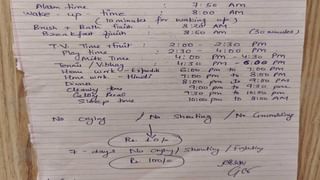 Alarm time : 7:50 Am
wake-up time : 8:00 AM
(10 minutes for waking up)
Brush + Bath finish 8:20 AM
Breakfast finish : 8:50 AM (30 minutes)
T.V. Time + fruit : 2:00 - 2:30 Pm
Play time : 2:30 - 4:00 Pm
Milk Time : 4:00 Pm - 4:30 Pm
Tennis / : 4:30 Pm - 6:00 Pm
Home work - : 6:00 Pm to 7:00 Pm
Home work - Hindi : 7:00 Pm to 8:00 Pm
Dinner : 8:00 Pm to 9:00 Pm
Cleaning time : 9:00 Pm to 9:30 Pm
Sleep time 10:00 Pm to 8:00 AM
No Crying / No Shouting / No
Rs. 10/-
7 - days No Crying / Shouting / Fighting
Rs 100/-